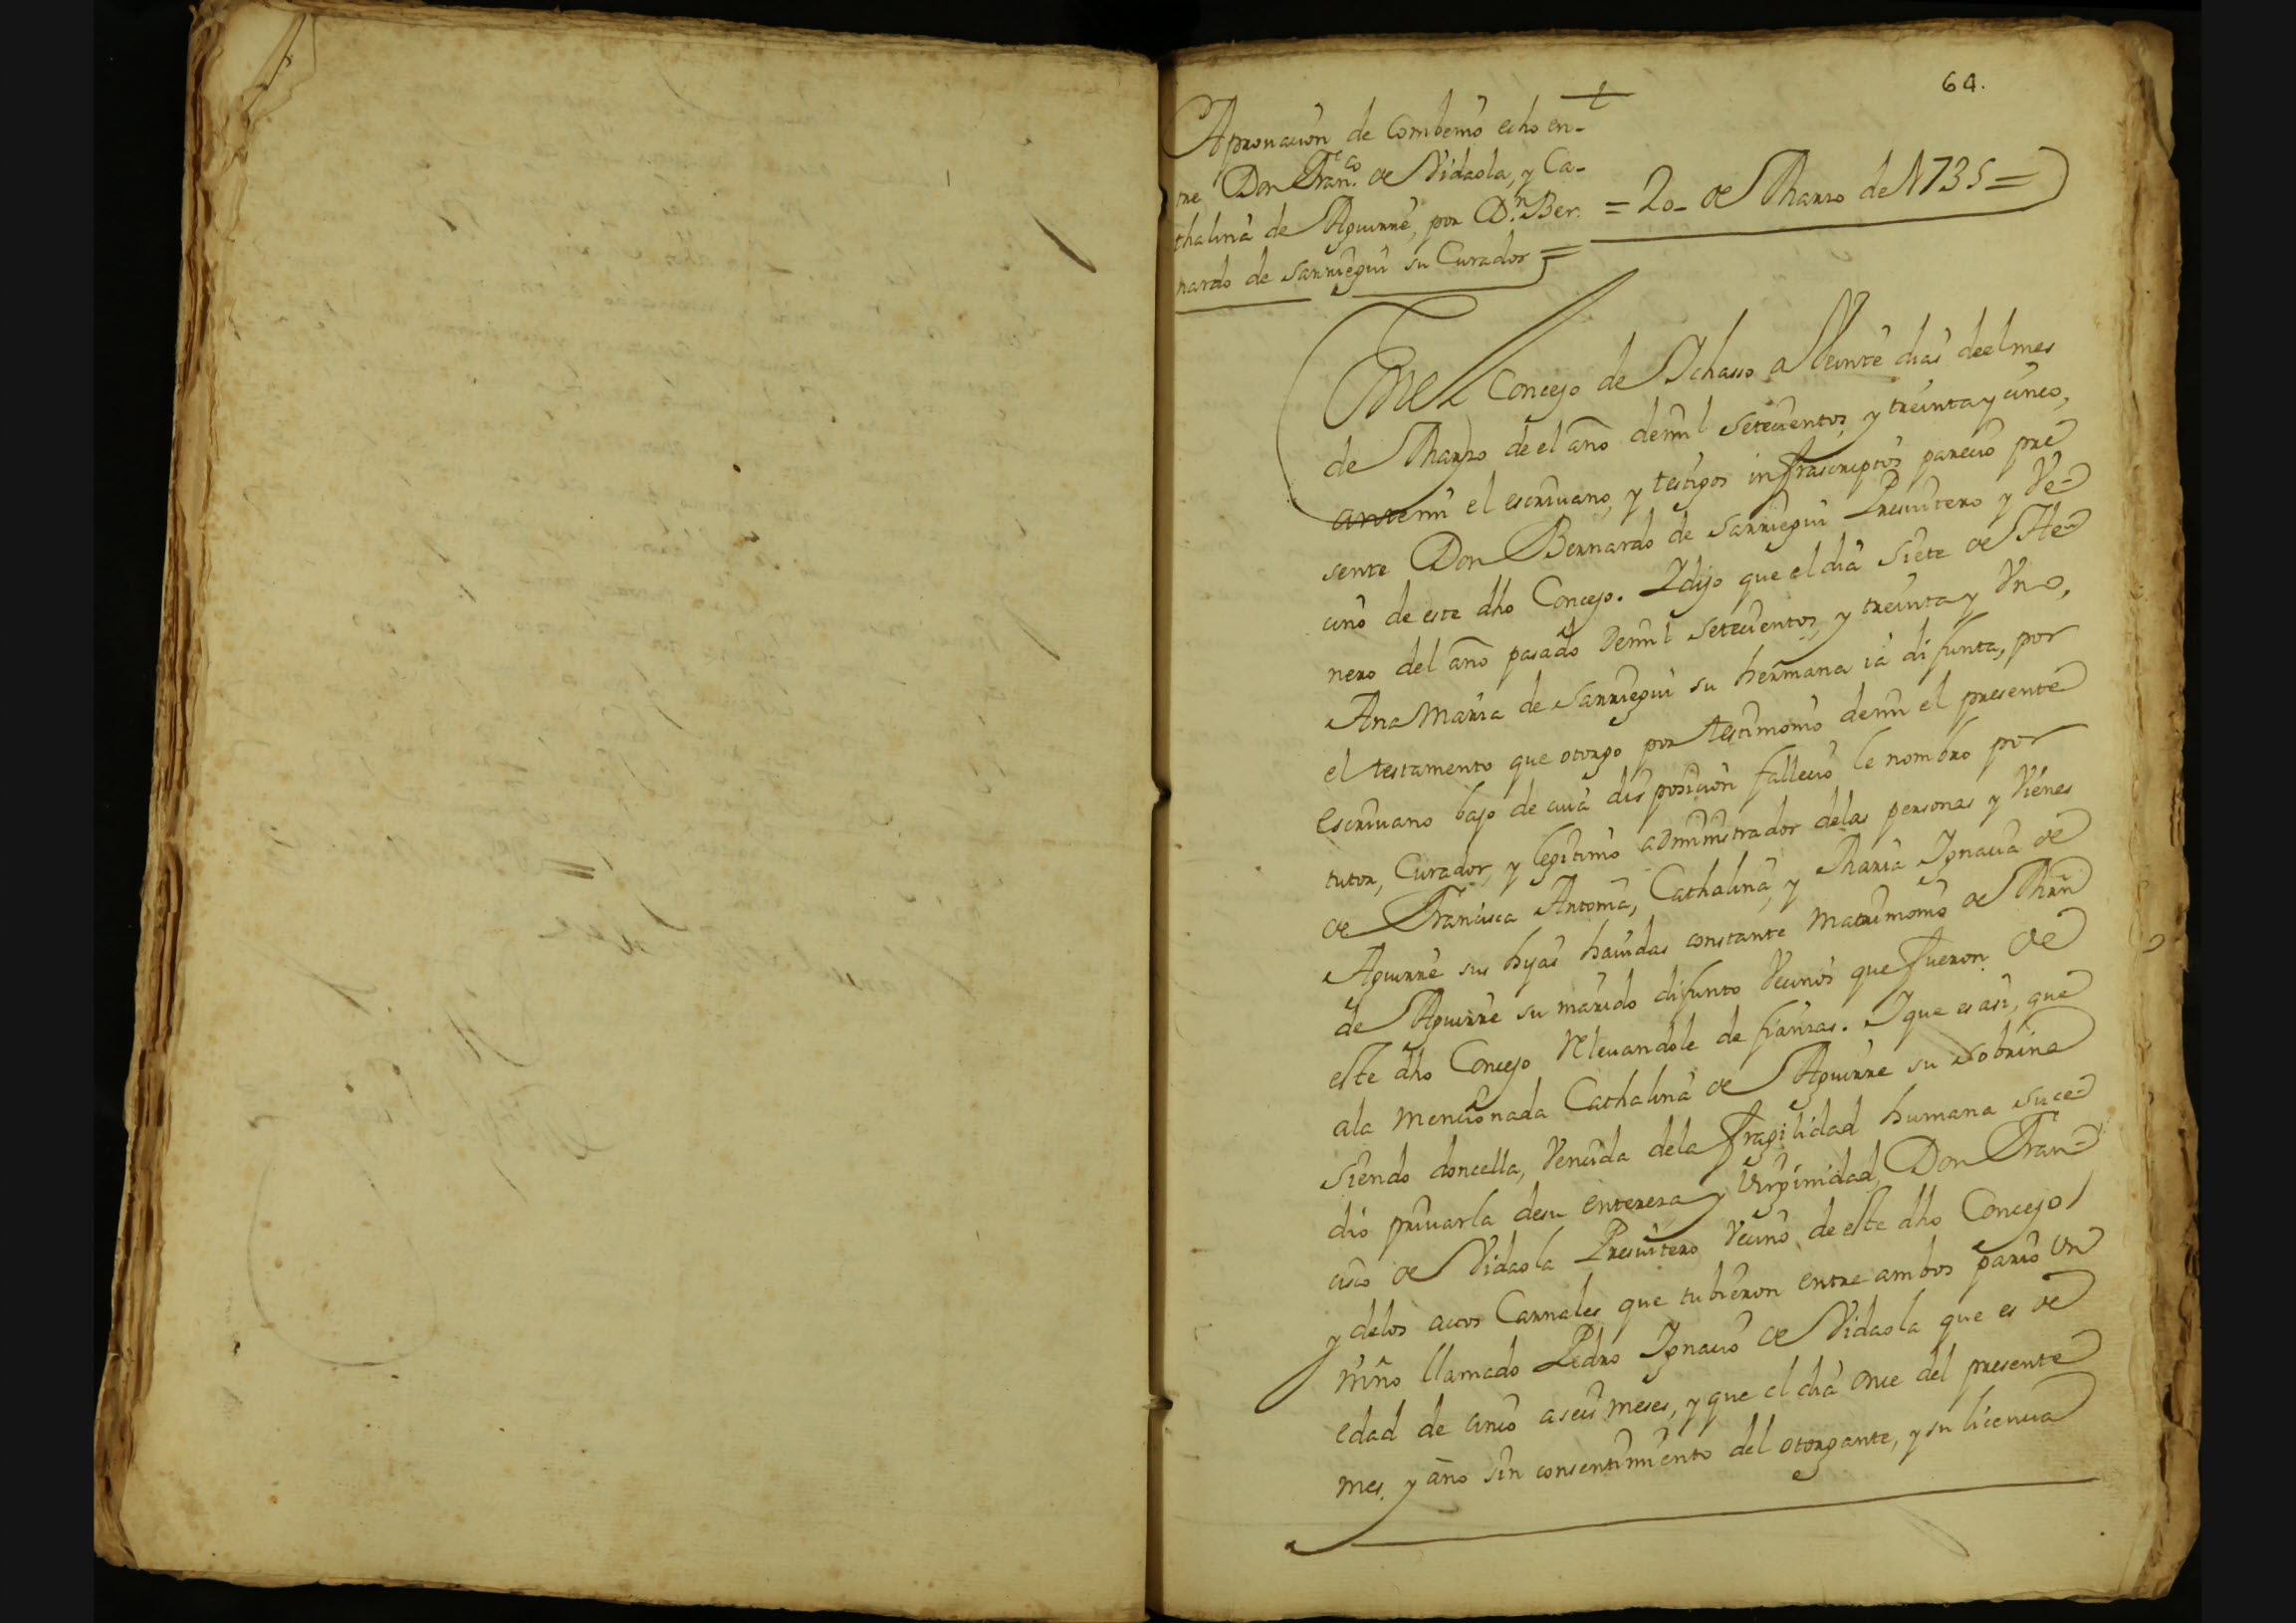 64.
Aprouacion de Combenio echo en-
tre Don Fran.co de Vidaola, y Ca-
thalina de Aguirre, por D.n Ber.
nardo de Sarriegui su Curador =
= 20- de Marzo de 1735 =
En el Concejo de Ichasso a Veinte dias de el mes
de Marzo de el año de mil setecientos, y treinta y cinco,
ante mi el escriuano, y testigos infrascriptos parecio pre
sente Don Bernardo de Sarriegui Presuitero y Ve-
cino de este dho Concejo. Y dijo que el dia siete de He-
nero del año pasado de mil setecientos, y treinta y Vno,
Ana Maria de Sarriegui su hermana ia difunta, por
el testamento que otorgo por testimonio de mi el presente
escriuano bajo de cuia disposicion fallecio le nombro por
tutor, Curador, y legitimo administrador delas personas y Vienes
de Francisca Antonia, Cathalina, y Maria Ignacia de
Aguirre sus hijas hauidas constante Matrimonio de Mrñ
de Aguirre su marido difunto Vecinos que fueron de
este dho Concejo releuandole de fianzas. I que es asi, que
ala mencionada Cathalina de Aguirre su sobrina
siendo doncella, Vencida dela fragilidad humana suce-
dio priuarla desu entereza y Virginidad, Don Fran-
cisco de Vidaola Presuitero Vecino de este dho Concejo
y delos actos Carnales que tubieron entre ambos pario Vn
niño llamado Pedro Ignacio de Vidaola que es de
edad de cinco a seis meses, y que el dia once del presente
mes, y año sin consentimiento del otorgante, y su licencia